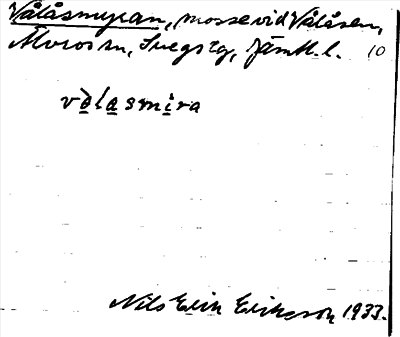 Vålåsmyran, mosse vid Vålåsen,
Älvros sn, Svegs tg, Jämtl. l. 10
vålasmira
Nils Erik Eriksson 1933.